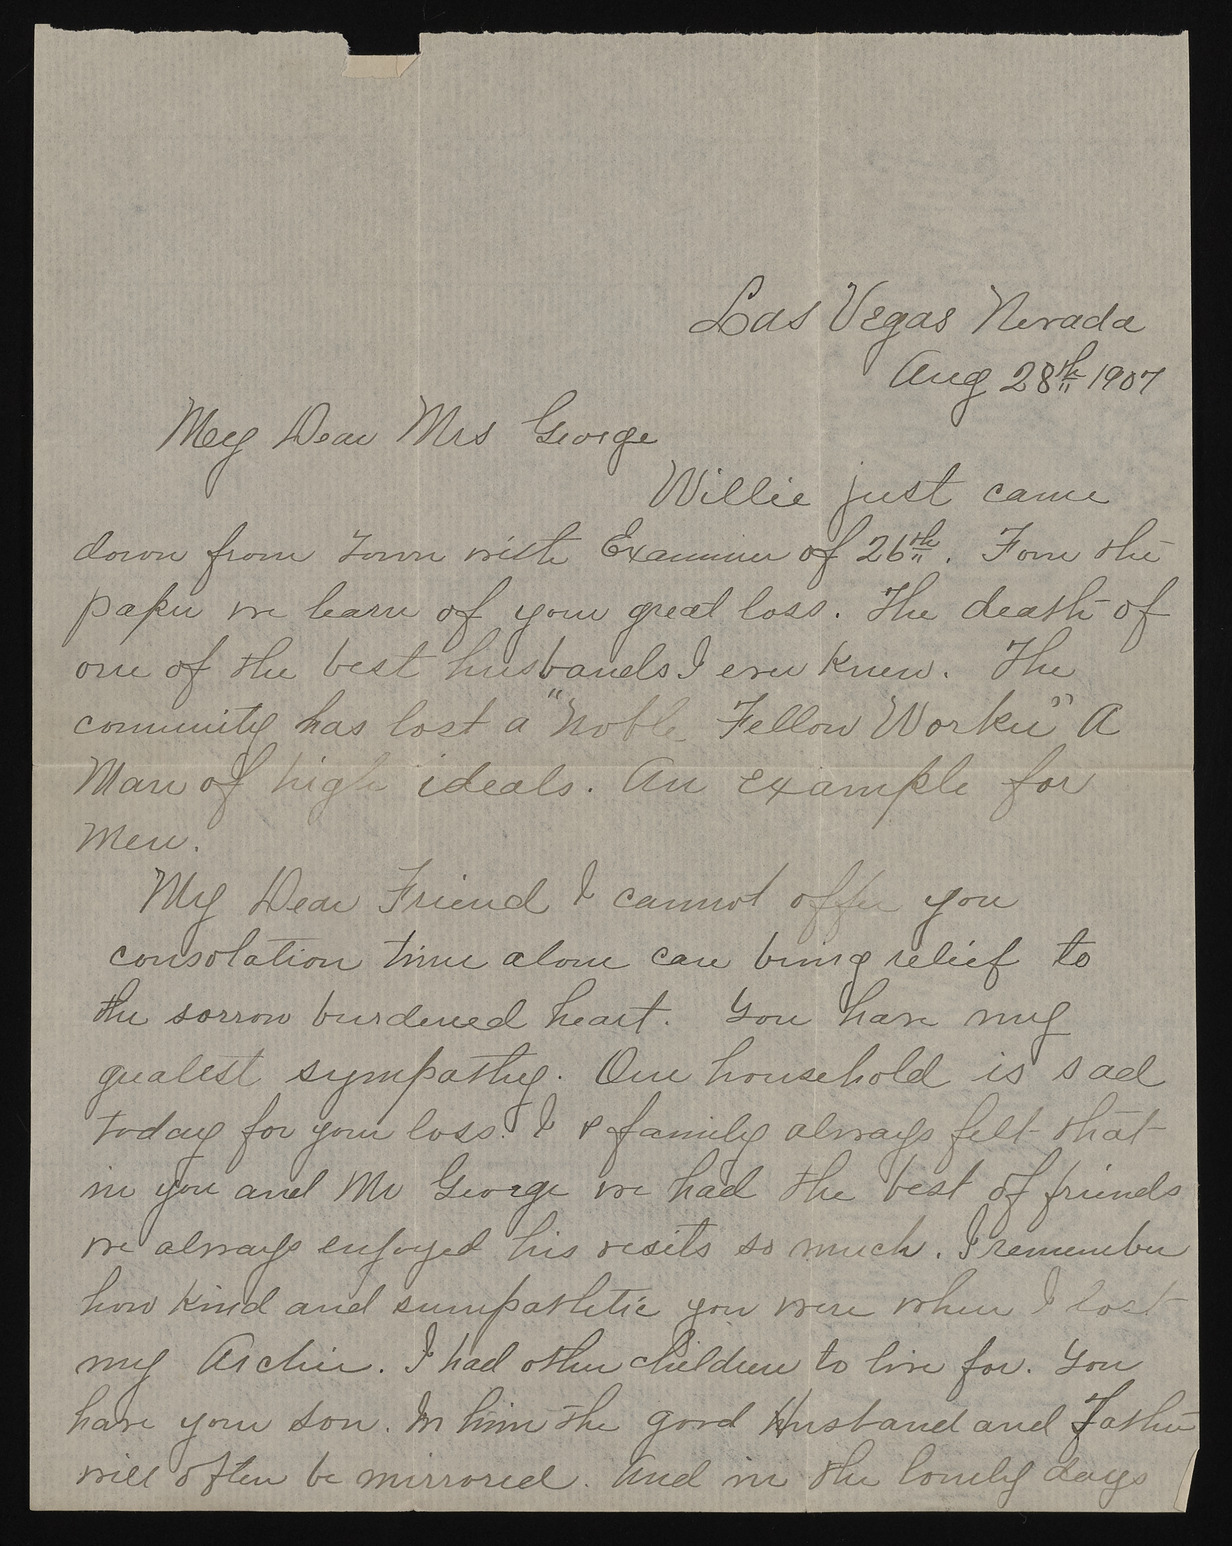 Las Vegas Nevada
Aug 28th 1907
My Dear Mrs George
Willie just came
down from Town with Examiner of 26th. From the
paper we learn of your great loss. The death of
one of the best husbands I ever knew. The
comunity has lost a "Noble Fellow Worker" A
Man of high ideals. An Example for
Men.
My Dear Friend I cannot offer you
consolation time alone can bring relief to
the sorrow burdened heart. You have my
greatest sympathy. Our household is sad
today for your loss. I & family always felt that
in you and Mr George we had the best of friends
we always enjoyed his visits so much. I remember
how kind and sumpathetic you were when I lost
my Archie. I had other children to live for. You
have your son. In him the good Husband and Father
will often be mirrored. And in the lonely days